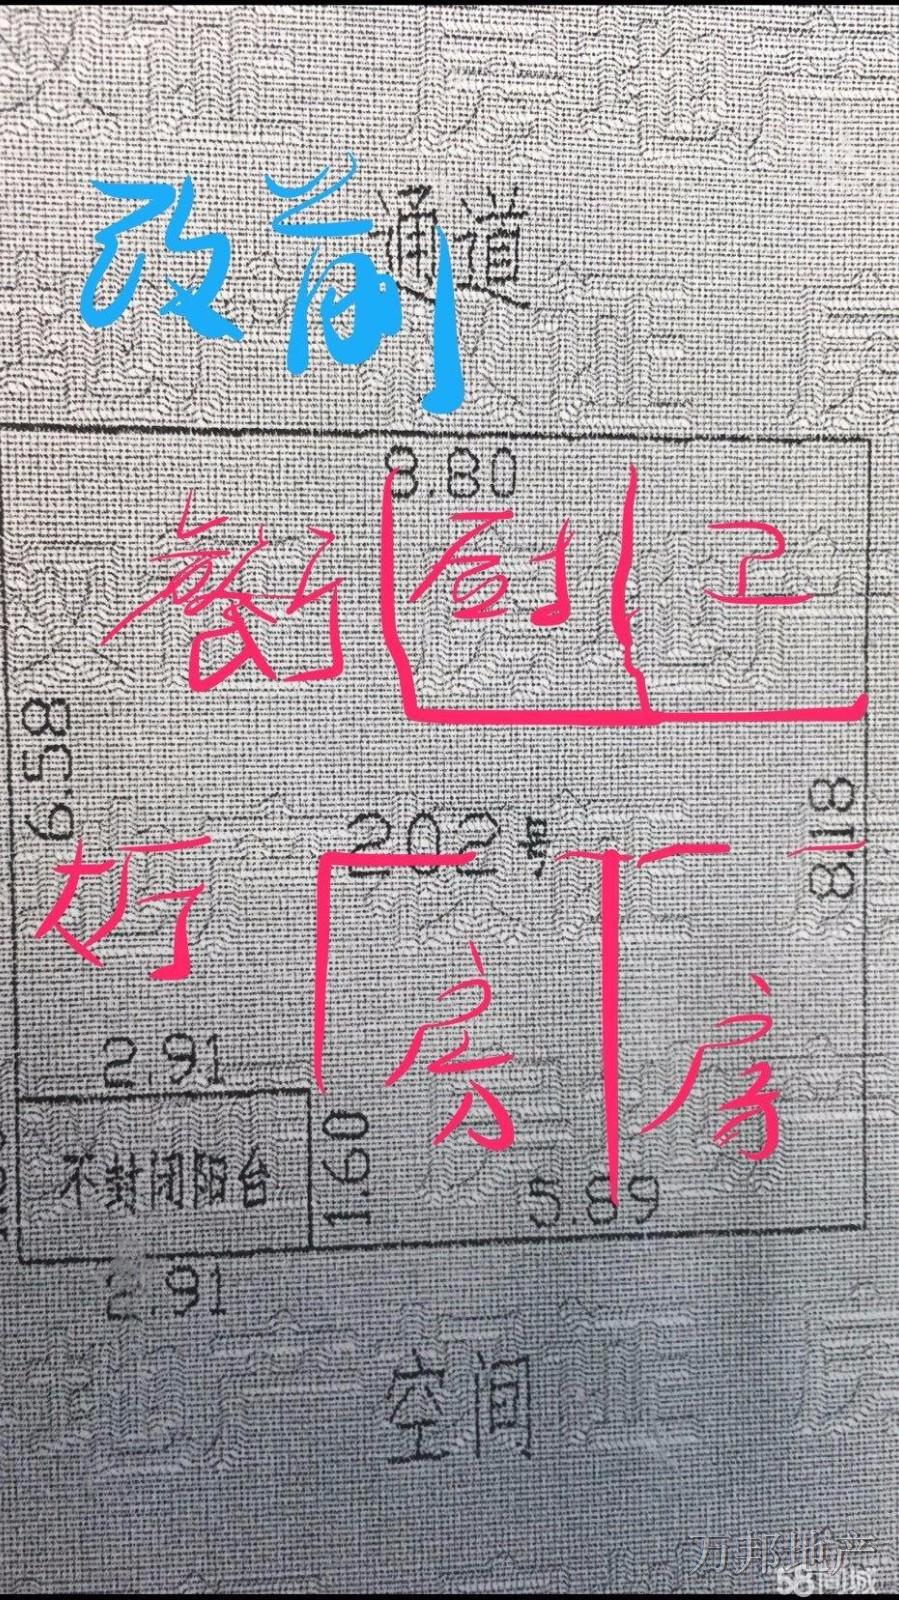 改前
通道
8.80
餐厅 厨 卫
6.58
202号
8.18
大厅
房 房
2.91
不封闭阳台
1.60
5.89
2.91
空间
万邦地产
58同城